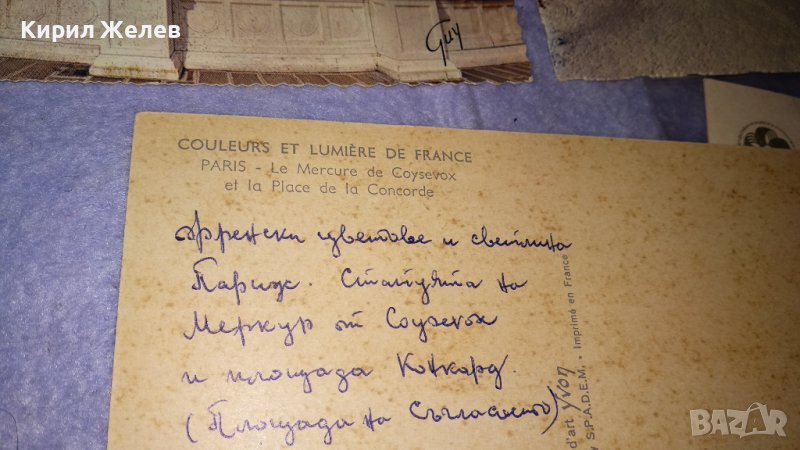 Кирил Желев
Guy
COULEURS ET LUMIÈRE DE FRANCE
PARIS - Le Mercure de Coysevox
et la Place de la Concorde
Френски цветове и светлина
Париж. Статуята на
Меркур от Coysevox
и площада Конкорд.
(Площада на Съгласието)
d'art Yvon
S.P.A.D.E.M. • Imprimé en France
BAZAR